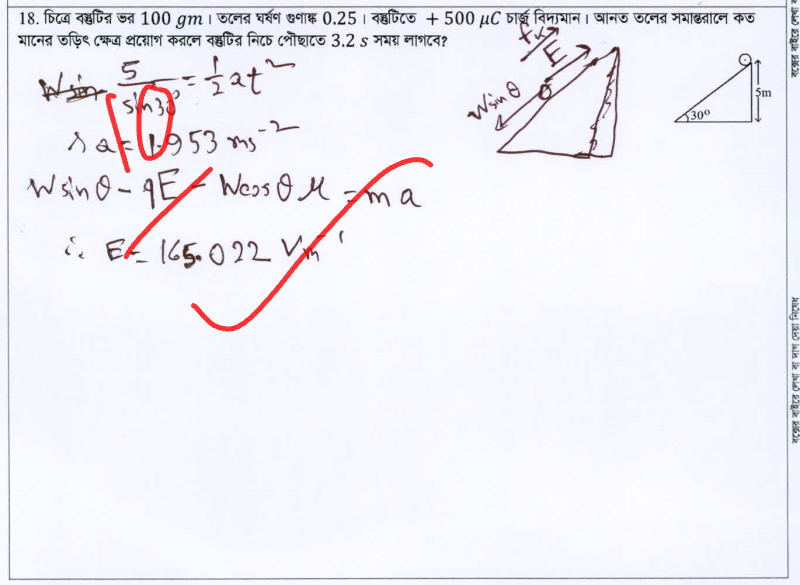 18. চিত্রে বস্তুটির ভর 100 gm। তলের ঘর্ষণ গুণাঙ্ক 0.25। বস্তুটিতে + 500 μC চার্জ বিদ্যমান। আনত তলের সমান্তরালে কত
মানের তড়িৎ ক্ষেত্র প্রয়োগ করলে বস্তুটির নিচে পৌছাতে 3.2 s সময় লাগবে?
5/sin30° = 1/2 at²
a = 1.953 ms⁻²
Wsinθ - qE - Wcosθμ = ma
∴ E = 165.022 Vm⁻¹
fk
E
Wsinθ
5m
30°
বক্সের বাইরে লেখা বা দাগ দেয়া নিষেধ